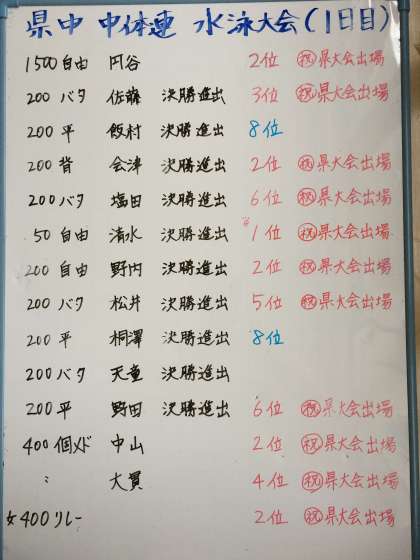 県中 中体連 水泳大会(1日目)
1500自由 円谷 2位 ㊗県大会出場
200バタ 佐藤 決勝進出 3位 ㊗県大会出場
200平 飯村 決勝進出 8位
200背 会津 決勝進出 2位 ㊗県大会出場
200バタ 塩田 決勝進出 6位 ㊗県大会出場
50自由 清水 決勝進出 1位 ㊗県大会出場
200自由 野内 決勝進出 2位 ㊗県大会出場
200バタ 松井 決勝進出 5位 ㊗県大会出場
200平 桐澤 決勝進出 8位
200バタ 天童 決勝進出
200平 野田 決勝進出 6位 ㊗県大会出場
400個メド 中山 2位 ㊗県大会出場
〃 大貫 4位 ㊗県大会出場
女400リレー 2位 ㊗県大会出場